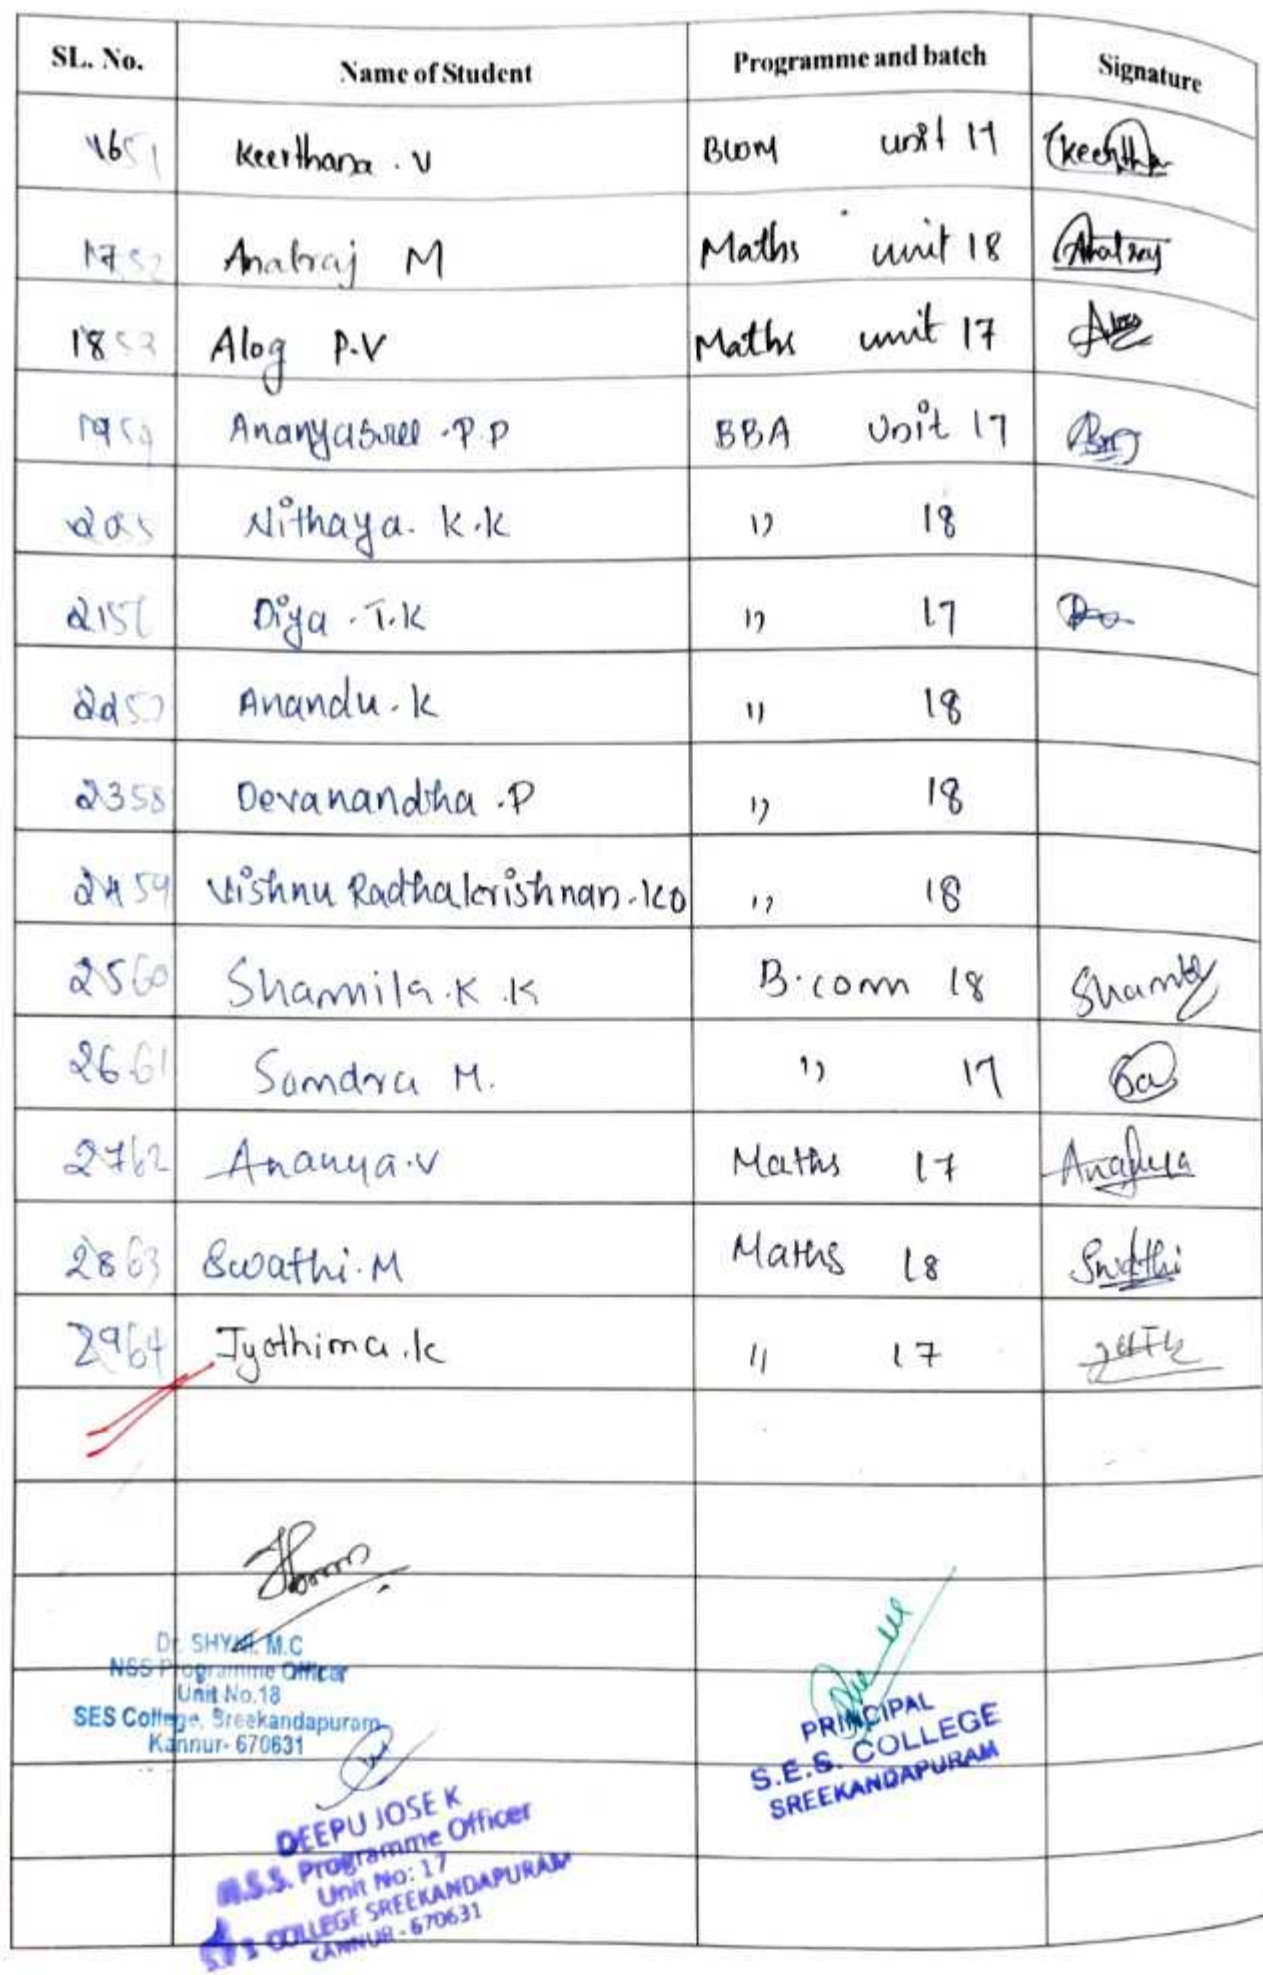 SL. No. Name of Student Programme and batch Signature
16 51 Keerthana . V BCOM unit 17 Keertha
17 52 Anabraj M Maths unit 18
18 53 Alog P.V Maths unit 17
19 54 Ananyasree .P.P BBA Unit 17
20 55 Nithaya. K.K ,, 18
21 56 Diya . T.K ,, 17
22 57 Anandu . K ,, 18
23 58 Devanandha .P ,, 18
24 59 Vishnu Radhakrishnan . KO ,, 18
25 60 Shamila .K .K B.com 18
26 61 Sandra M. ,, 17
27 62 Ananya.V Maths 17
28 63 Swathi.M Maths 18 Swathi
29 64 Jyothima .K ,, 17
Dr. SHYNI. M.C
NSS Programme Officer
Unit No.18
SES College, Sreekandapuram
Kannur- 670631
PRINCIPAL
S.E.S. COLLEGE
SREEKANDAPURAM
DEEPU JOSE K
N.S.S. Programme Officer
Unit No: 17
COLLEGE SREEKANDAPURAM
KANNUR - 670631